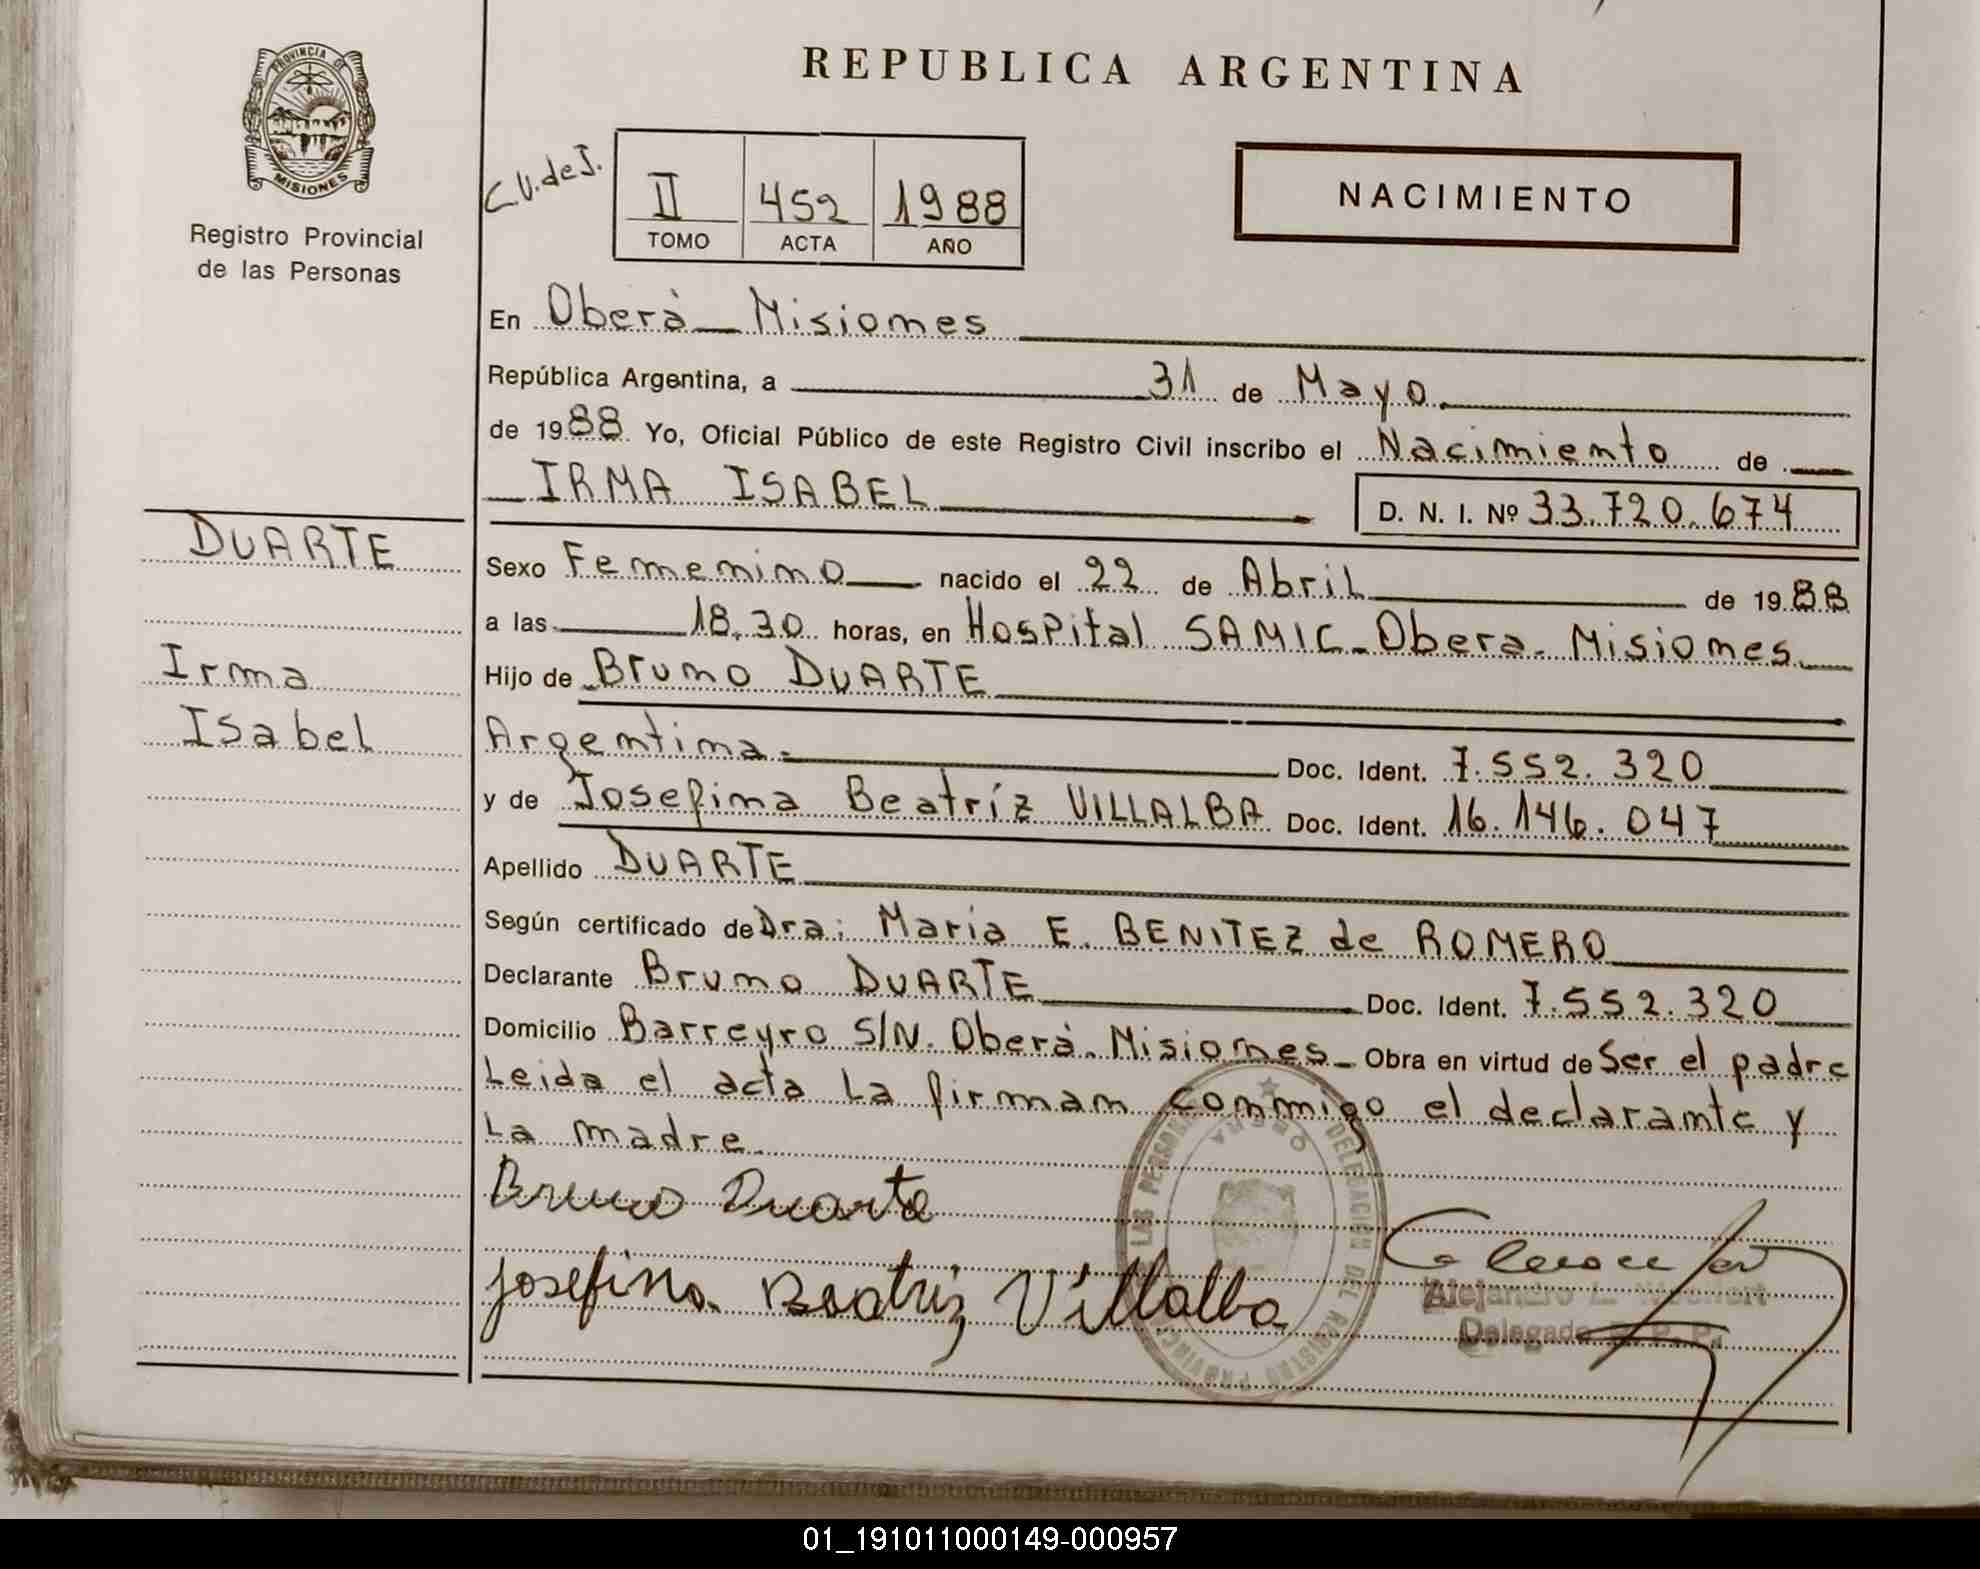 PROVINCIA DE
MISIONES
Registro Provincial
de las Personas
REPUBLICA ARGENTINA
C.V. de I.
II 452 1988
TOMO ACTA AÑO
NACIMIENTO
En Oberà Misiones
República Argentina, a 31 de Mayo
de 1988 Yo, Oficial Público de este Registro Civil inscribo el Nacimiento de
IRMA ISABEL
D. N. I. Nº 33.720.674
DUARTE
Irma
Isabel
Sexo Femenino nacido el 22 de Abril de 1988
a las 18.30 horas, en Hospital SAMIC - Obera - Misiones
Hijo de Bruno DUARTE
Argentina. Doc. Ident. 7.552.320
y de Josefina Beatríz VILLALBA Doc. Ident. 16.146.047
Apellido DUARTE
Según certificado de Dra: María E. BENITEZ de ROMERO
Declarante Bruno DUARTE Doc. Ident. 7.552.320
Domicilio Barreyro S/N. Oberà. Misiones Obra en virtud de Ser el padre
Leida el acta La firman conmigo el declarante y
La madre.
Bruno Duarte
Josefina Beatriz Villalba
DELEGACION DEL REGISTRO PROVINC LAS PERSON
OBERA
Alejandro L.
Delegado R. P. P.
01_191011000149-000957